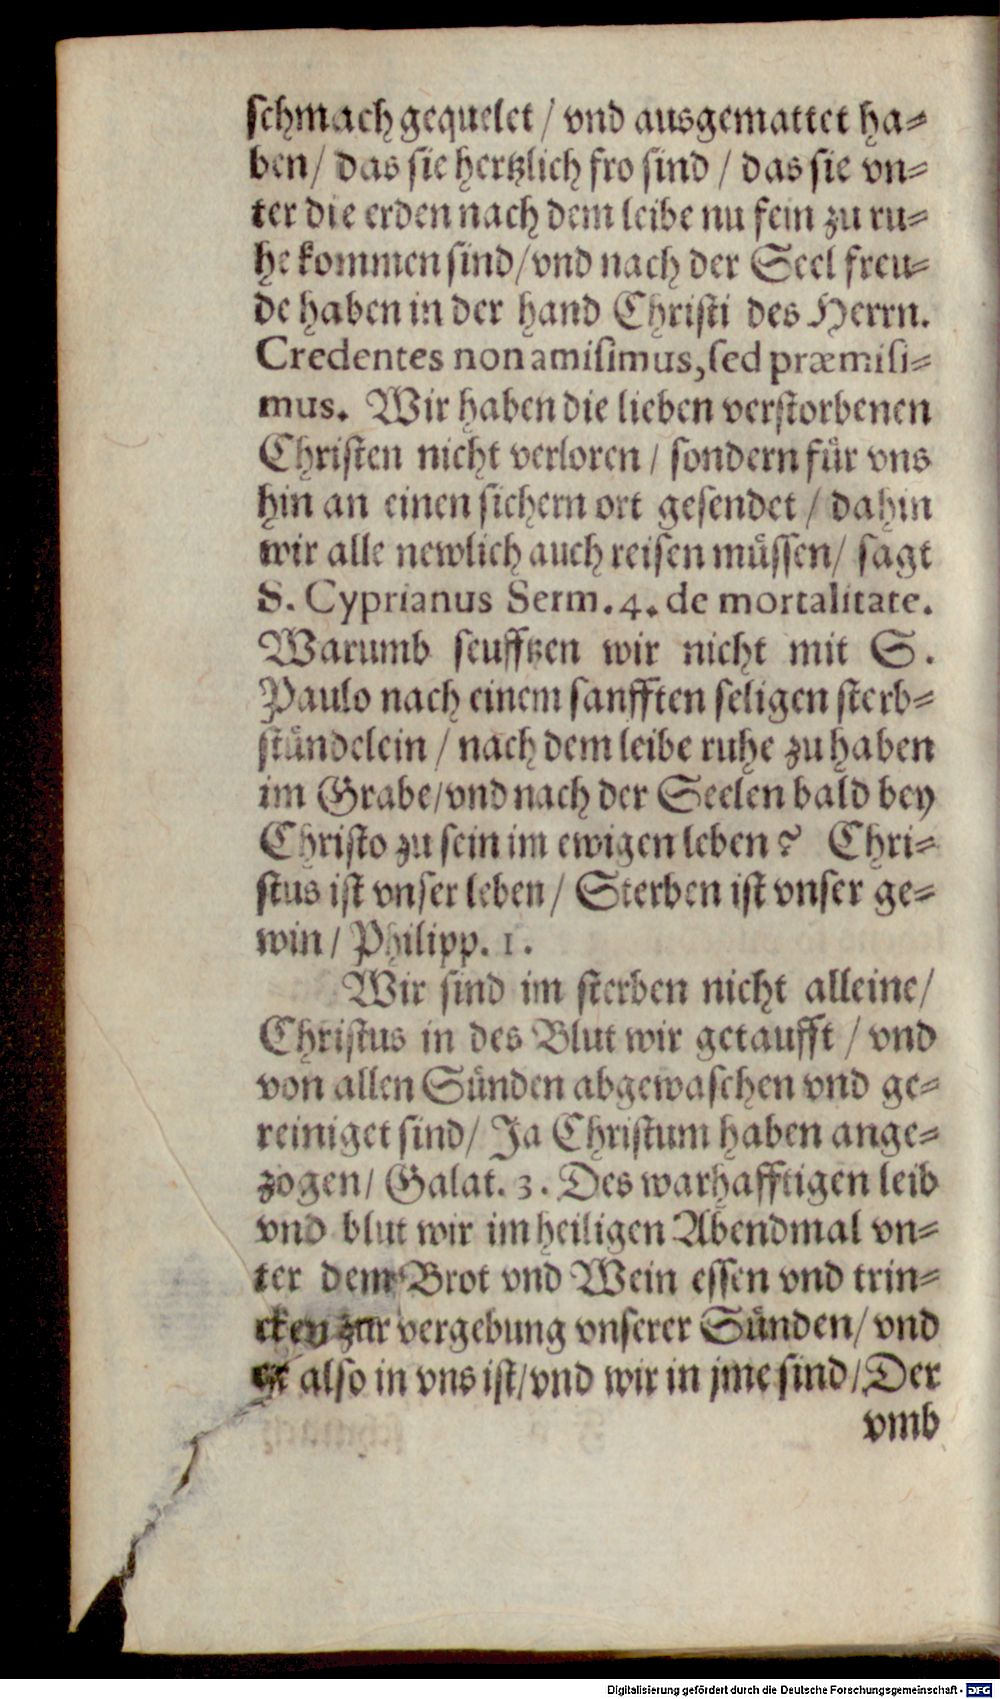 schmach gequelet / vnd ausgemattet ha-
ben / das sie hertzlich fro sind / das sie vn-
ter die erden nach dem leibe nu fein zu ru-
he kommen sind / vnd nach der Seel freu-
de haben in der hand Christi des Herrn.
Credentes non amisimus, sed præmisi-
mus. Wir haben die lieben verstorbenen
Christen nicht verloren / sondern für vns
hin an einen sichern ort gesendet / dahin
wir alle newlich auch reisen müssen / sagt
S. Cyprianus Serm. 4. de mortalitate.
Warumb seufftzen wir nicht mit S.
Paulo nach einem sanfften seligen sterb-
stündelein / nach dem leibe ruhe zu haben
im Grabe / vnd nach der Seelen bald bey
Christo zu sein im ewigen leben? Chri-
stus ist vnser leben / Sterben ist vnser ge-
win / Philipp. 1.
Wir sind im sterben nicht alleine /
Christus in des Blut wir getaufft / vnd
von allen Sünden abgewaschen vnd ge-
reiniget sind / Ja Christum haben ange-
zogen / Galat. 3. Des warhafftigen leib
vnd blut wir im heiligen Abendmal vn-
ter dem Brot vnd Wein essen vnd trin-
cken zur vergebung vnserer Sünden / vnd
er also in vns ist / vnd wir in jme sind / Der
vmb
Digitalisierung gefördert durch die Deutsche Forschungsgemeinschaft - DFG